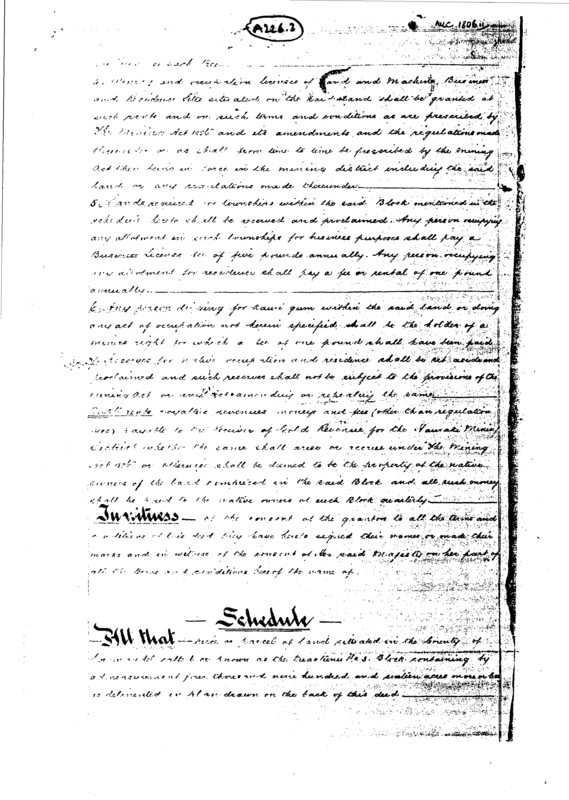 A226.2
AUC. 1806
such tree
and occupation licenses of and Machine, Business
and Residence Sites situated on the said land shall be granted at
such rents and on such terms and conditions as are prescribed by
The Mining Act and its amendments and the regulations made
thereunder or as shall from time to time be prescribed by the Mining
Act then being in force in the mining district including the said
land or any regulations made thereunder
5. Lands acquired for townships within the said Block mentioned in the
schedule hereto shall be reserved and proclaimed. Any person occupying
any allotment in such townships for business purposes shall pay a
Business License fee of five pounds annually. Any person occupying
any allotment for residence shall pay a fee or rental of one pound
annually.
6. Any person digging for kauri gum within the said land or doing
any act of occupation not herein specified shall be the holder of a
miners right for which a fee of one pound shall have been paid.
7. Reserves for native occupation and residence shall be set aside and
proclaimed and such reserves shall not be subject to the provisions of the
Mining Act or any Act amending or repealing the same.
rents royalties revenues moneys and fees (other than regulation
fees) payable to the Receiver of Gold Revenue for the Hauraki Mining
District whether the same shall arise or accrue under The Mining
Act or otherwise shall be deemed to be the property of the native
owners of the land comprised in the said Block and all such money
shall be paid to the native owners of such Block quarterly
In witness of the consent of the grantors to all the terms and
conditions of this deed they have hereto signed their names or made their
marks and in witness of the consent of Her said Majesty on her part of
all the terms and conditions hereof the name of
Schedule
All that piece or parcel of land situated in the County of
called or known as the No 3. Block containing by
admeasurement four thousand nine hundred and sixteen acres more or less
as delineated in plan drawn on the back of this deed